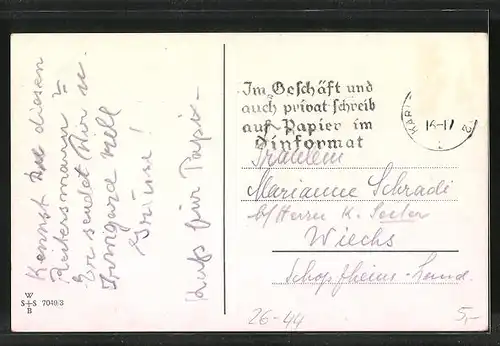 Kennst du diesen
Reitersmann?
Er sendet Dir u.
Irmgard viele
Grüsse!
Kuss für Papi –
W
S+S 7049/3
B
Im Geschäft und
auch privat schreib
auf Papier im
Dinformat
KARL
16-17
Fräulein
Marianne Schradi
b/Herrn K. Seiter
Wiechs
Schopfheim-Land.
26-44
5,-